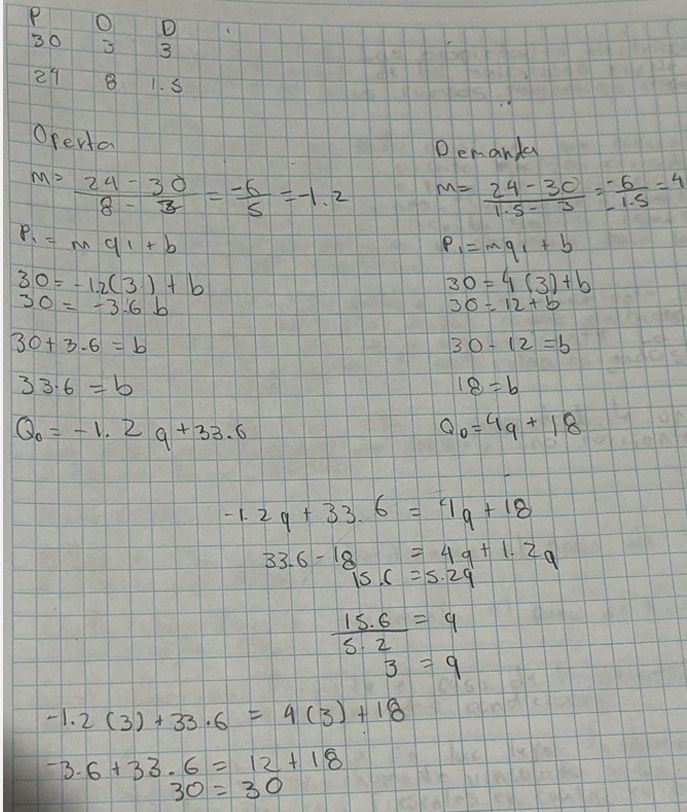 P O D
30 3 3
24 8 1.5
Operta
m= 24-30 / 8-3 = -6/5 = -1.2
P₁ = m q₁ + b
30 = -1.2(3) + b
30 = -3.6 b
30+3.6 = b
33.6 = b
Q₀ = -1.2 q + 33.6
Demanda
m= 24-30 / 1.5-3 = -6/-1.5 = 4
P₁ = mq₁ + b
30 = 4 (3) + b
30 = 12 + b
30 - 12 = b
18 = b
Q₀ = 4q + 18
-1.2q + 33.6 = 4q + 18
33.6 - 18 = 4q + 1.2q
15.6 = 5.2q
15.6 / 5.2 = q
3 = q
-1.2 (3) + 33.6 = 4(3) + 18
-3.6 + 33.6 = 12 + 18
30 = 30